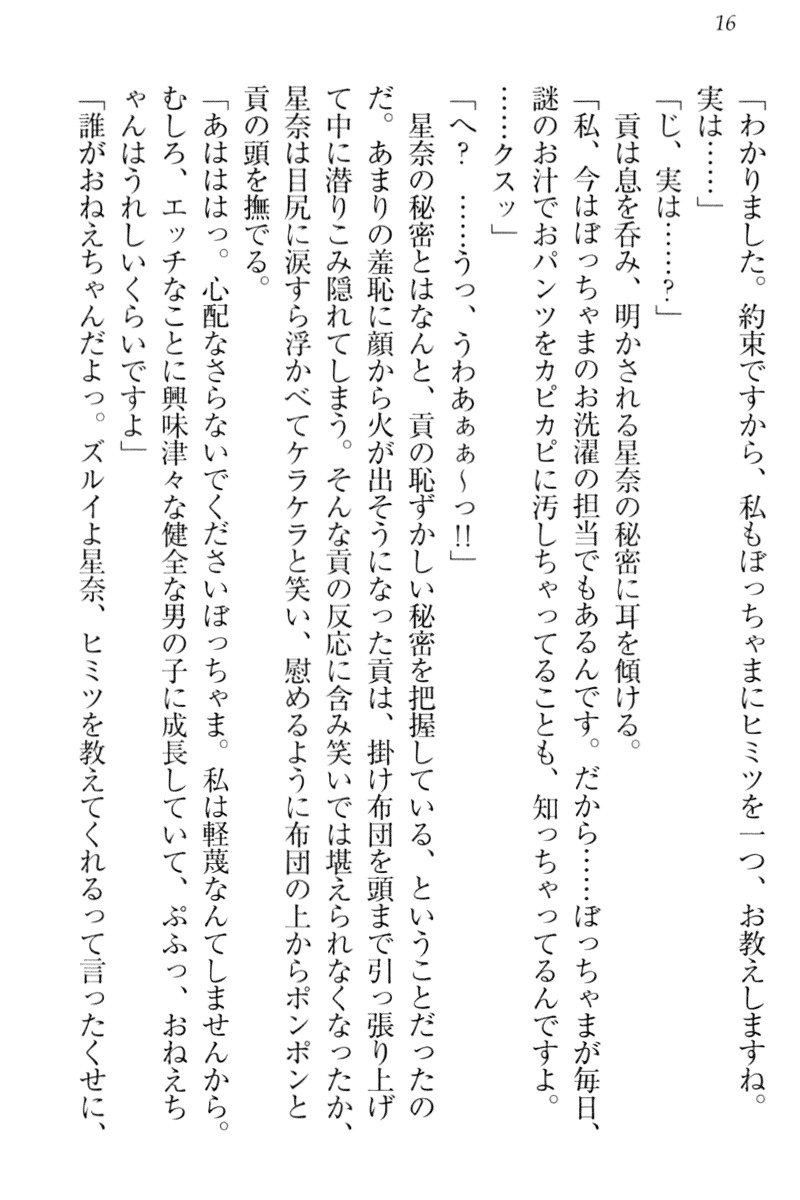 16
「わかりました。約束ですから、私もぼっちゃまにヒミツを一つ、お教えしますね。
実は……」
「じ、実は……?」
貢は息を呑み、明かされる星奈の秘密に耳を傾ける。
「私、今はぼっちゃまのお洗濯の担当でもあるんです。だから……ぼっちゃまが毎日、
謎のお汁でおパンツをカピカピに汚しちゃってることも、知っちゃってるんですよ。
……クスッ」
「へ? ……うっ、うわあぁぁ〜っ!!」
星奈の秘密とはなんと、貢の恥ずかしい秘密を把握している、ということだったの
だ。あまりの羞恥に顔から火が出そうになった貢は、掛け布団を頭まで引っ張り上げ
て中に潜りこみ隠れてしまう。そんな貢の反応に含み笑いでは堪えられなくなったか、
星奈は目尻に涙すら浮かべてケラケラと笑い、慰めるように布団の上からポンポンと
貢の頭を撫でる。
「あはははっ。心配なさらないでくださいぼっちゃま。私は軽蔑なんてしませんから。
むしろ、エッチなことに興味津々な健全な男の子に成長していて、ぷふっ、おねえち
ゃんはうれしいくらいですよ」
「誰がおねえちゃんだよっ。ズルイよ星奈、ヒミツを教えてくれるって言ったくせに、